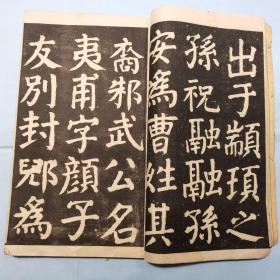 出于顓頊之
孫祝融融孫
安為曹姓其
裔邾武公名
夷甫字顔子
友別封郳為